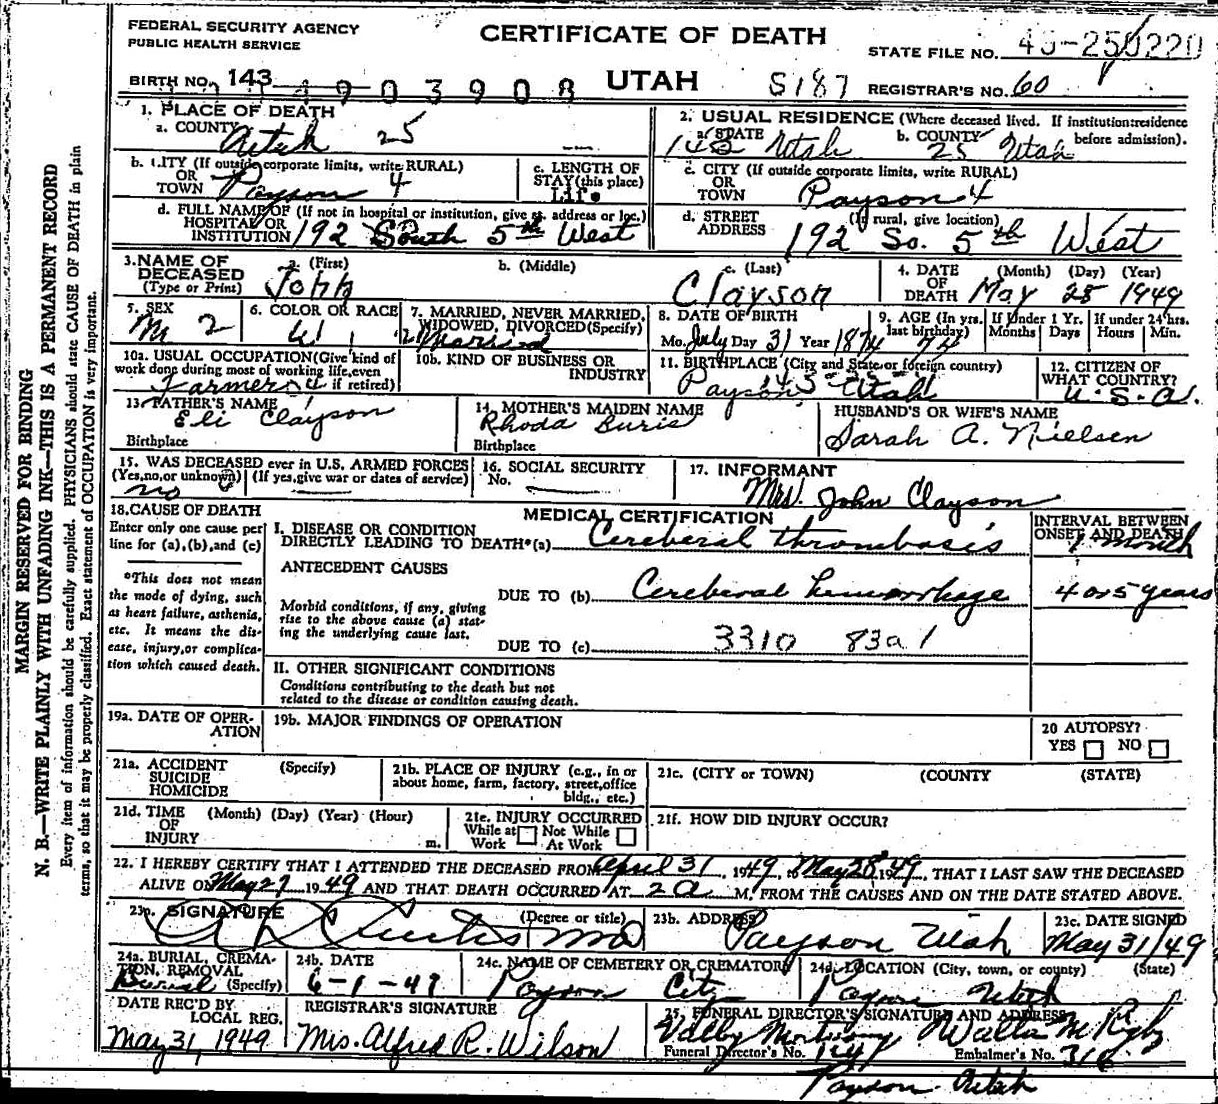 FEDERAL SECURITY AGENCY
PUBLIC HEALTH SERVICE
CERTIFICATE OF DEATH
STATE FILE NO.
BIRTH NO. 143
4903908
UTAH
5187
REGISTRAR'S NO. 60
1. PLACE OF DEATH
a. COUNTY Utah 25
2. USUAL RESIDENCE (Where deceased lived. If institution: residence before admission).
a. STATE Utah
b. COUNTY 25 Utah
b. CITY (If outside corporate limits, write RURAL)
OR
TOWN Payson 4
c. LENGTH OF
STAY (this place)
Life
c. CITY (If outside corporate limits, write RURAL)
OR
TOWN Payson 4
d. FULL NAME OF (If not in hospital or institution, give st. address or loc.)
HOSPITAL OR
INSTITUTION 192 South 5th West
d. STREET (If rural, give location)
ADDRESS 192 So. 5th West
3. NAME OF
DECEASED
(Type or Print)
a. (First) John
b. (Middle)
c. (Last) Clayson
4. DATE
OF
DEATH
(Month) (Day) (Year)
May 28 1949
5. SEX
M 2
6. COLOR OR RACE
W 1
7. MARRIED, NEVER MARRIED,
WIDOWED, DIVORCED (Specify)
2 Married
8. DATE OF BIRTH
Mo. July Day 31 Year 1874
9. AGE (In yrs. last birthday) 74
If Under 1 Yr.
Months Days
If under 24 hrs.
Hours Min.
10a. USUAL OCCUPATION (Give kind of
work done during most of working life, even
if retired)
Farmer 4
10b. KIND OF BUSINESS OR
INDUSTRY
11. BIRTHPLACE (City and State or foreign country)
Payson Utah
12. CITIZEN OF
WHAT COUNTRY?
U.S.A.
13. FATHER'S NAME
Eli Clayson
Birthplace
14. MOTHER'S MAIDEN NAME
Rhoda Buris
Birthplace
HUSBAND'S OR WIFE'S NAME
Sarah A. Nielsen
15. WAS DECEASED ever in U.S. ARMED FORCES
(Yes, no, or unknown) (If yes, give war or dates of service)
no
16. SOCIAL SECURITY
No.
17. INFORMANT
Mrs. John Clayson
18. CAUSE OF DEATH
Enter only one cause per
line for (a), (b), and (c)
*This does not mean
the mode of dying, such
as heart failure, asthenia,
etc. It means the dis-
ease, injury, or complica-
tion which caused death.
MEDICAL CERTIFICATION
I. DISEASE OR CONDITION
DIRECTLY LEADING TO DEATH* (a) Cereberal thrombosis
INTERVAL BETWEEN
ONSET AND DEATH
1 month
ANTECEDENT CAUSES
DUE TO (b) Cereberal hemorrhage
4 or 5 years
Morbid conditions, if any, giving
rise to the above cause (a) stat-
ing the underlying cause last.
DUE TO (c) 3310 83a 1
II. OTHER SIGNIFICANT CONDITIONS
Conditions contributing to the death but not
related to the disease or condition causing death.
19a. DATE OF OPER-
ATION
19b. MAJOR FINDINGS OF OPERATION
20 AUTOPSY?
YES NO
21a. ACCIDENT
SUICIDE
HOMICIDE
(Specify)
21b. PLACE OF INJURY (e.g., in or
about home, farm, factory, street, office
bldg., etc.)
21c. (CITY or TOWN) (COUNTY) (STATE)
21d. TIME
OF
INJURY
(Month) (Day) (Year) (Hour)
m.
21e. INJURY OCCURRED
While at Work
Not While At Work
21f. HOW DID INJURY OCCUR?
22. I HEREBY CERTIFY THAT I ATTENDED THE DECEASED FROM April 31, 1949, to May 28, 1949, THAT I LAST SAW THE DECEASED
ALIVE ON May 27 1949 AND THAT DEATH OCCURRED AT 2 a M. FROM THE CAUSES AND ON THE DATE STATED ABOVE.
23a. SIGNATURE (Degree or title)
Curtis MD
23b. ADDRESS
Payson Utah
23c. DATE SIGNED
May 31/49
24a. BURIAL, CREMA-
TION, REMOVAL
Burial (Specify)
24b. DATE
6-1-49
24c. NAME OF CEMETERY OR CREMATORY
Payson City
24d. LOCATION (City, town, or county) (State)
Payson Utah
DATE REC'D BY
LOCAL REG.
May 31, 1949
REGISTRAR'S SIGNATURE
Mrs. Alfred R. Wilson
25. FUNERAL DIRECTOR'S SIGNATURE AND ADDRESS
Valley Mortuary
Funeral Director's No.
Embalmer's No. 316
Payson Utah
MARGIN RESERVED FOR BINDING
N. B.—WRITE PLAINLY WITH UNFADING INK—THIS IS A PERMANENT RECORD
Every item of information should be carefully supplied. PHYSICIANS should state CAUSE OF DEATH in plain
terms, so that it may be properly classified. Exact statement of OCCUPATION is very important.